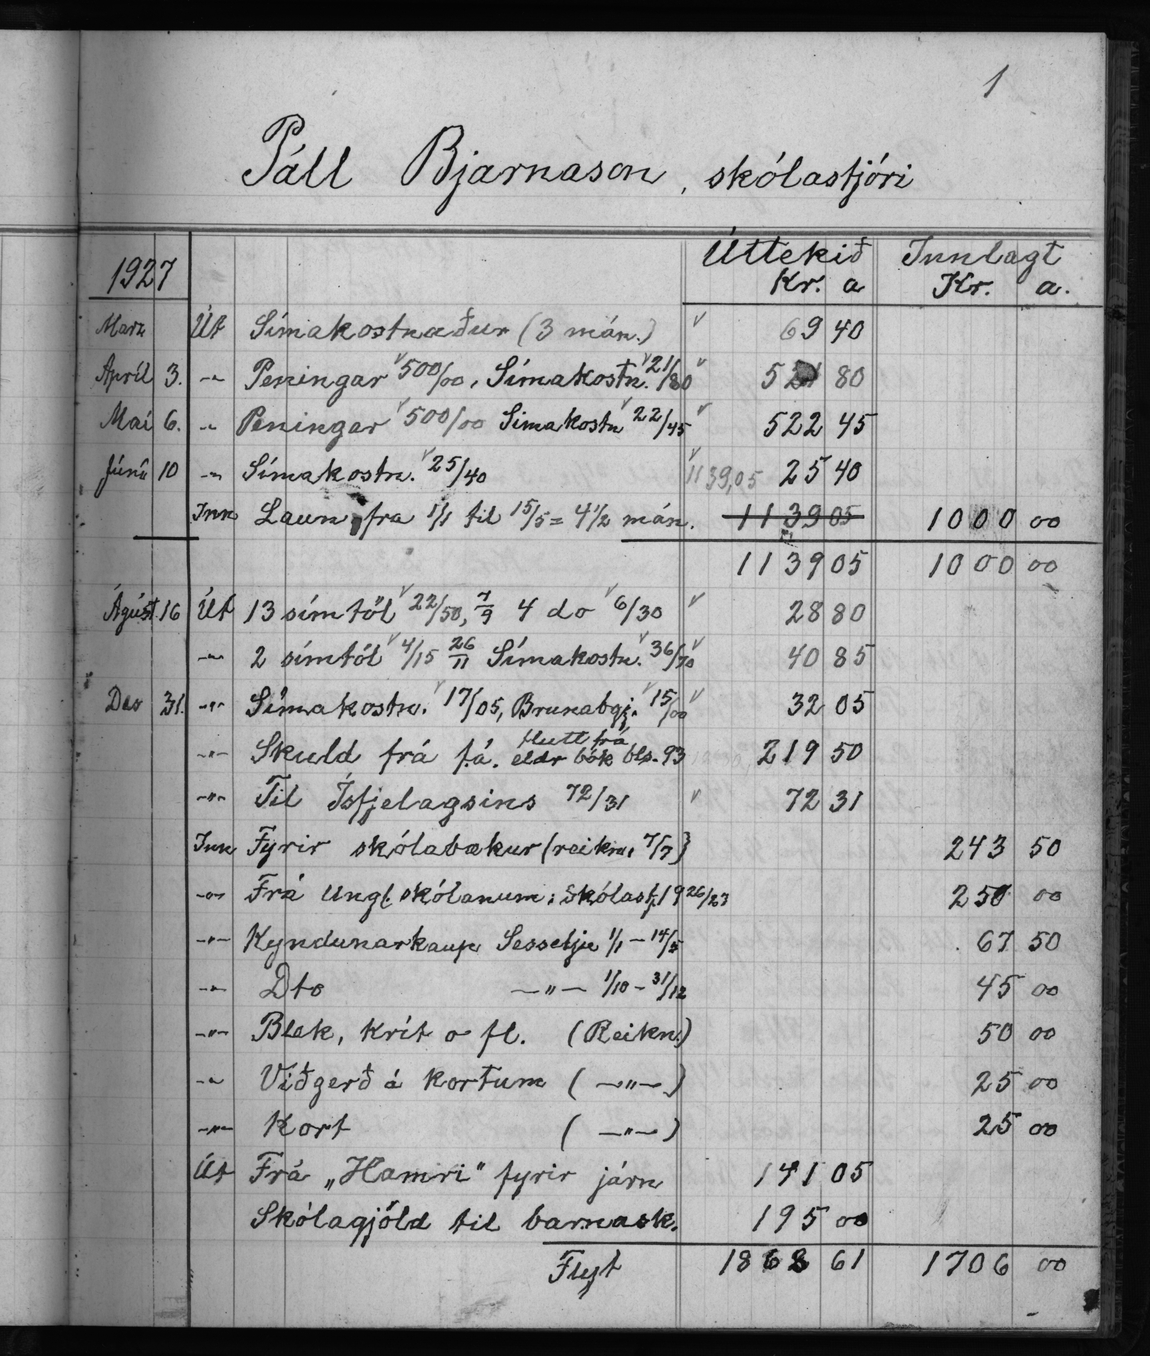 1
Páll Bjarnason, skólastjóri
1927 Úttekið Innlagt
Kr. a Kr. a.
Marz Út Símakostnaður (3 mán.) " 69 40
Apríl 3. -"- Peningar 500/00, Símakostn. 21/80 " 521 80
Mai 6. -"- Peningar 500/00 Símakostn 22/45 " 522 45
Júní 10 -"- Símakostn. 25/40 " 1139,05 25 40
Inn Laun fra 1/1 til 15/5 = 4 1/2 mán. 1139 05 1000 00
1139 05 1000 00
Ágúst. 16 Út 13 símtöl 22/50, 7/9 4 do 6/30 " 28 80
-"- 2 símtöl 4/15 26/11 Símakostn. 36/70 " 40 85
Des 31. -"- Símakostn. 17/05, Brunabgj. 15/00 " 32 05
-"- Skuld frá f.á. flutt frá eldr bók bls. 93 219 50
-"- Til Ísfjelagsins 72/31 " 72 31
Inn Fyrir skólabækur (reikn. 7/7) 243 50
-"- Frá Ungl. skólanum: Skólastj. 1926/27 250 00
-"- Kyndunarkaup Sesselju 1/1 - 14/5 67 50
-"- Dto -"- 1/10 - 31/12 45 00
-"- Blek, krít o fl. (Reikn.) 50 00
-"- Viðgerð á kortum ( -"- ) 25 00
-"- Kort ( -"- ) 25 00
Út Frá „Hamri" fyrir járn 141 05
Skólagjöld til barnask. 195 00
Flyt 1868 61 1706 00